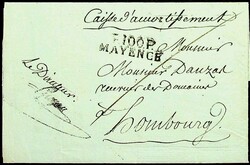 Caisse d'amortissement
P.100.P.
MAYENCE
Monsieur
Monsieur Dauzas
receveur des Domaines
Hombourg